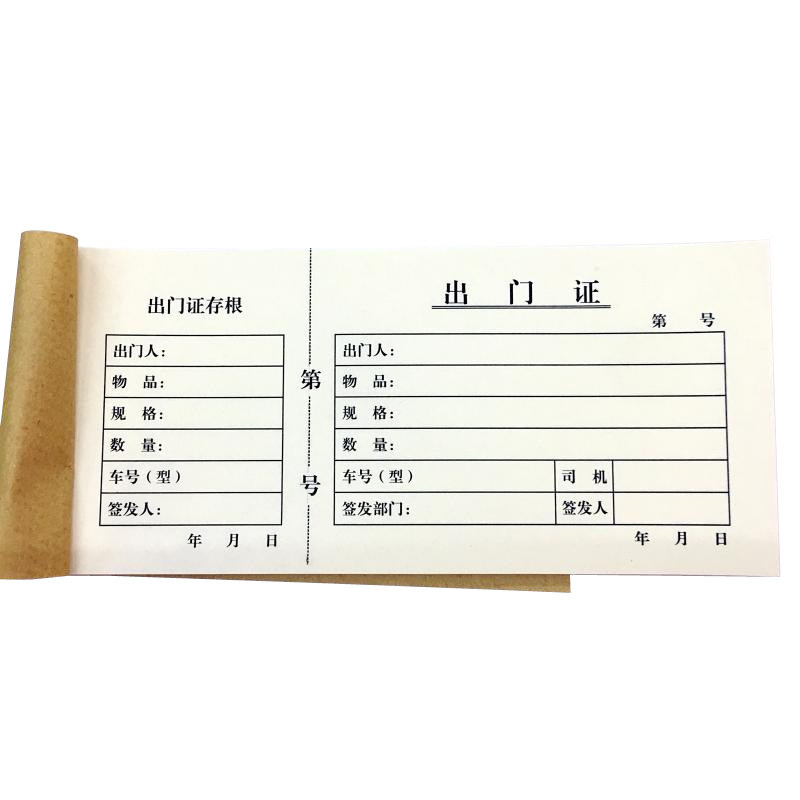 出门证存根
出门人：
物　品：
规　格：
数　量：
车号（型）
签发人：
年　月　日
第
号
出　门　证
第　号
出门人：
物　品：
规　格：
数　量：
车号（型）　司　机
签发部门：　签发人
年　月　日